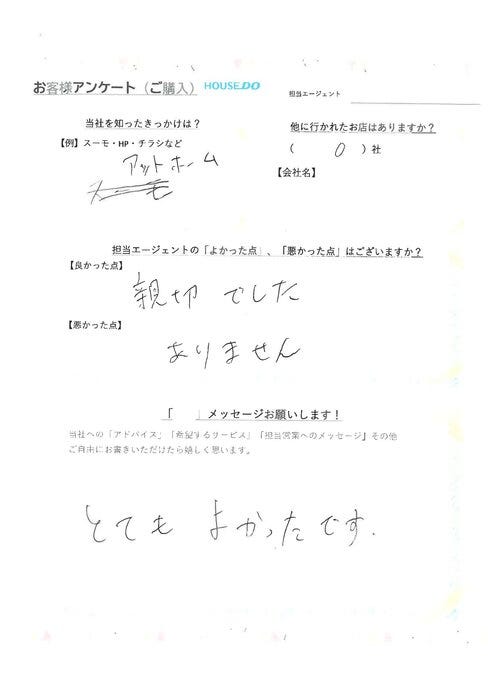 お客様アンケート（ご購入） HOUSEDO
担当エージェント
当社を知ったきっかけは？
【例】スーモ・HP・チラシなど
アットホーム
スーモ
他に行かれたお店はありますか？
（ 0 ）社
【会社名】
担当エージェントの「よかった点」、「悪かった点」はございますか？
【良かった点】
親切でした
【悪かった点】
ありません
「　　」メッセージお願いします！
当社への「アドバイス」「希望するサービス」「担当営業へのメッセージ」その他
ご自由にお書きいただけたら嬉しく思います。
とても よかったです.